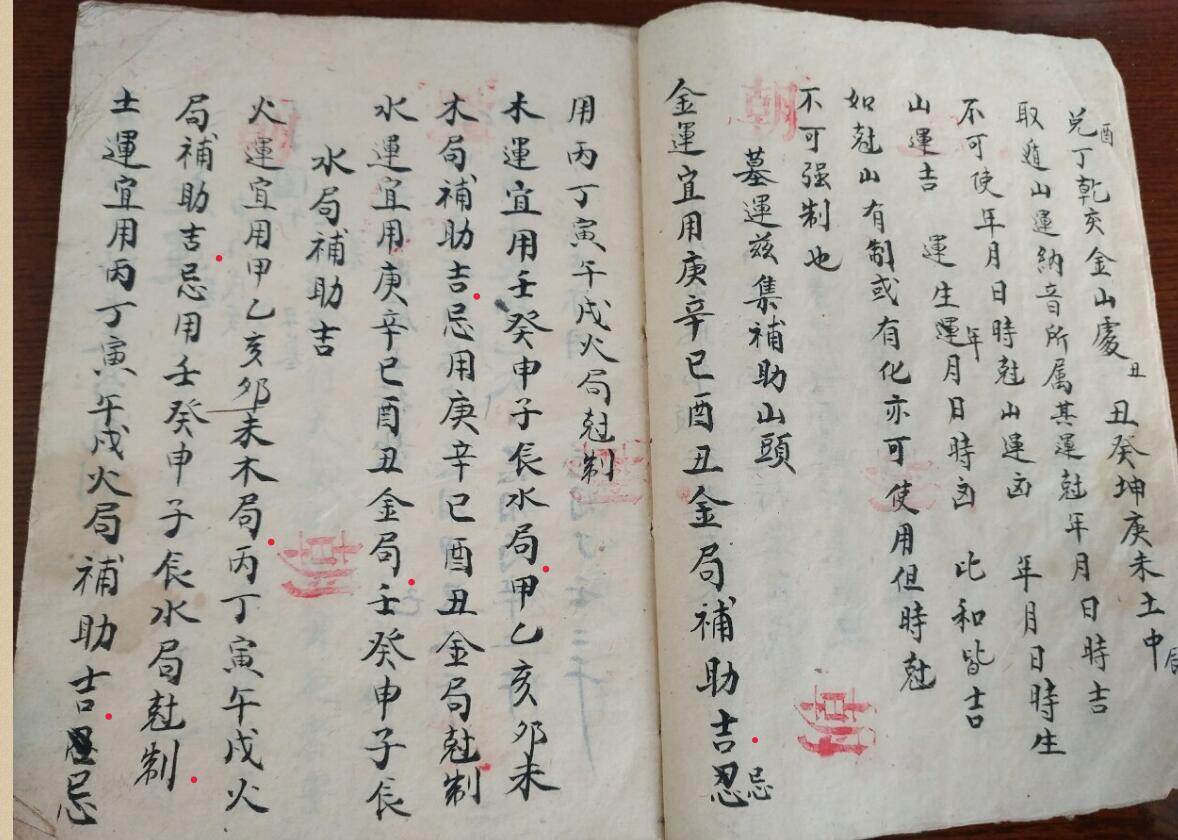 兌酉丁乾亥金山處 丑癸坤庚未土中
取遁山運納音所属其運尅年月日時吉
不可使年月日時尅山運凶 年月日時生
山運吉 運生運年月日時凶 比和皆吉
如尅山有制或有化亦可使用但時尅
不可强制也
墓運兹集補助山頭
金運宜用庚辛巳酉丑金局補助吉忌
用丙丁寅午戌火局尅制
木運宜用壬癸申子辰水局甲乙亥卯未
木局補助吉忌用庚辛巳酉丑金局尅制
水運宜用庚辛巳酉丑金局壬癸申子辰
水局補助吉
火運宜用甲乙亥卯未木局丙丁寅午戌火
局補助吉忌用壬癸申子辰水局尅制
土運宜用丙丁寅午戌火局補助吉忌